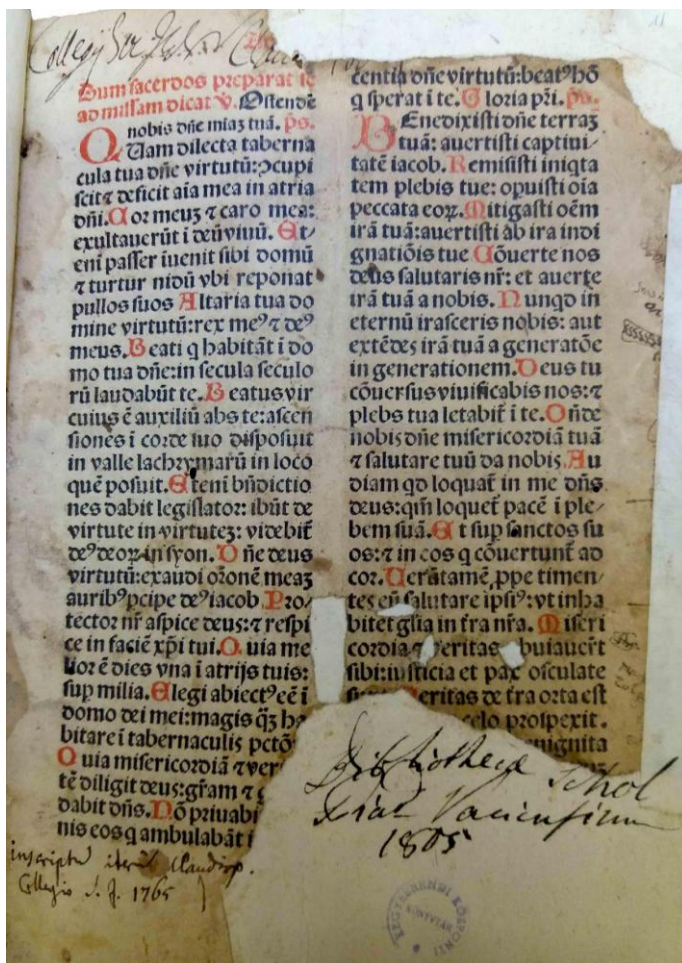 Collegij Soc. Jesu
Dum sacerdos preparat se
ad missam dicat ℣. Ostende
nobis dñe miaʒ tuã. ps.
QUam dilecta taberna
cula tua dñe virtutũ: ↄcupi
scit ⁊ deficit aĩa mea in atria
dñi. Cor meuʒ ⁊ caro mea:
exultauerũt ĩ deũ viuũ. Et⸗
eni passer ĩuenit sibi domũ
⁊ turtur nidũ vbi reponat
pullos suos Altaria tua do
mine virtutũ: rex meꝰ ⁊ deꝰ
meus. Beati q habitãt ĩ do
mo tua dñe: in secula seculo
rũ laudabũt te. Beatus vir
cuius ẽ auxiliũ abs te: ascen
siones ĩ corde suo disposuit
in valle lachrymarũ in loco
quẽ posuit. Eteni bñdictio
nes dabit legislator: ibũt de
virtute in virtuteʒ: videbit̃
deꝰ deoꝝ in syon. Dñe deus
virtutũ: exaudi orõnẽ meaʒ
auribꝰ pcipe deꝰ iacob. Pro⸗
tector nr̃ aspice deus: ⁊ respi
ce in faciẽ xp̃i tui. Quia me
lior ẽ dies vna ĩ atrijs tuis:
sup milia. Elegi abiectꝰ eẽ ĩ
domo dei mei: magis q̃ʒ ha
bitare ĩ tabernaculis pctõ
Quia misericordiã ⁊ ver
tẽ diligit deus: gr̃am ⁊
dabit dñs. Nõ priuabi
nis eos q ambulabãt ĩ
inscriptus
Collegio S. J. 1765
centia dñe virtutũ: beatꝰ hõ
q sperat ĩ te. Gloria pr̃i. ps.
BEnedixisti dñe terraʒ
tuã: auertisti captiui⸗
tatẽ iacob. Remisisti iniqta
tem plebis tue: opuisti oĩa
peccata eoꝝ. Mitigasti oẽm
irã tuã: auertisti ab ira indi
gnatiõis tue. Cõuerte nos
deus salutaris nr̃: et auerte
irã tuã a nobis. Nunqd in
eternũ irasceris nobis: aut
extẽdes irã tuã a generatõe
in generationem. Deus tu
cõuersus viuificabis nos: ⁊
plebs tua letabit̃ ĩ te. Oñde
nobis dñe misericordiã tuã
⁊ salutare tuũ da nobis. Au
diam qd loquat̃ in me dñs
deus: qm̃ loquet̃ pacẽ ĩ ple⸗
bem suã. Et sup sanctos su
os: ⁊ in eos q cõuertunt̃ ad
cor. Uerũtamẽ ꝓpe timen⸗
tes eũ salutare ipsiꝰ: vt inha
bitet glĩa in t̃ra nr̃a. Miseri
cordia ⁊ veritas buiauerũt
sibi: iusticia et pax osculate
eritas de t̃ra orta est
celo prospexit.
nignita
Bibliothecæ Schol
Piar Vaciensium
1805
KEGYESRENDI KÖZPONTI
KÖNYVTÁR